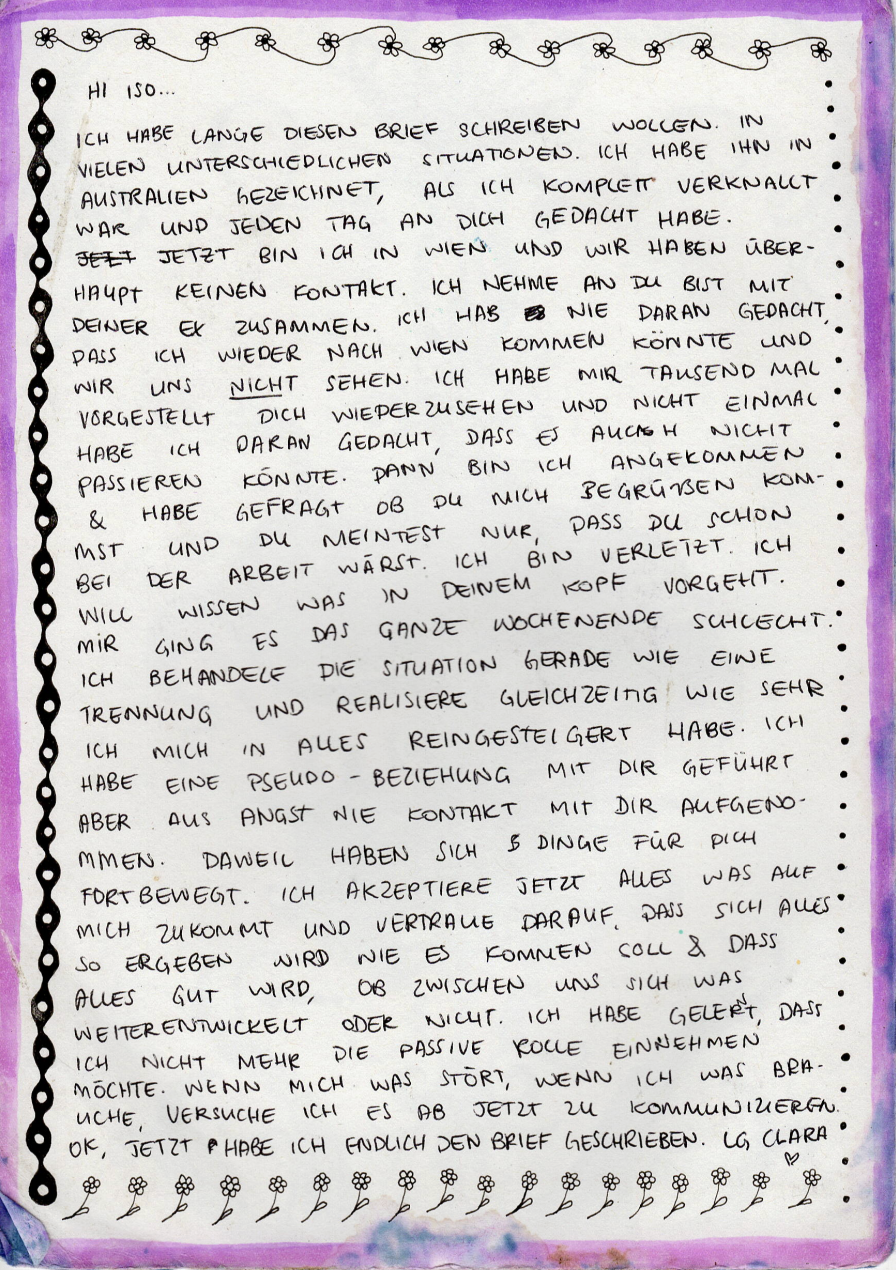 HI ISO...
ICH HABE LANGE DIESEN BRIEF SCHREIBEN WOLLEN. IN
VIELEN UNTERSCHIEDLICHEN SITUATIONEN. ICH HABE IHN IN
AUSTRALIEN GEZEICHNET, ALS ICH KOMPLETT VERKNALLT
WAR UND JEDEN TAG AN DICH GEDACHT HABE.
JETZT JETZT BIN ICH IN WIEN UND WIR HABEN ÜBER-
HAUPT KEINEN KONTAKT. ICH NEHME AN DU BIST MIT
DEINER EX ZUSAMMEN. ICH HAB NIE DARAN GEDACHT,
DASS ICH WIEDER NACH WIEN KOMMEN KÖNNTE UND
WIR UNS NICHT SEHEN. ICH HABE MIR TAUSEND MAL
VORGESTELLT DICH WIEDERZUSEHEN UND NICHT EINMAL
HABE ICH DARAN GEDACHT, DASS ES AUCH NICHT
PASSIEREN KÖNNTE. DANN BIN ICH ANGEKOMMEN
& HABE GEFRAGT OB DU MICH BEGRÜßEN KOM-
MST UND DU MEINTEST NUR, DASS DU SCHON
BEI DER ARBEIT WÄRST. ICH BIN VERLETZT. ICH
WILL WISSEN WAS IN DEINEM KOPF VORGEHT.
MIR GING ES DAS GANZE WOCHENENDE SCHLECHT.
ICH BEHANDELE DIE SITUATION GERADE WIE EINE
TRENNUNG UND REALISIERE GLEICHZEITIG WIE SEHR
ICH MICH IN ALLES REINGESTEIGERT HABE. ICH
HABE EINE PSEUDO-BEZIEHUNG MIT DIR GEFÜHRT
ABER AUS ANGST NIE KONTAKT MIT DIR AUFGENO-
MMEN. DAWEIL HABEN SICH DINGE FÜR DICH
FORTBEWEGT. ICH AKZEPTIERE JETZT ALLES WAS AUF
MICH ZUKOMMT UND VERTRAUE DARAUF, DASS SICH ALLES
SO ERGEBEN WIRD WIE ES KOMMEN SOLL & DASS
ALLES GUT WIRD, OB ZWISCHEN UNS SICH WAS
WEITERENTWICKELT ODER NICHT. ICH HABE GELERNT, DASS
ICH NICHT MEHR DIE PASSIVE ROLLE EINNEHMEN
MÖCHTE. WENN MICH WAS STÖRT, WENN ICH WAS BRA-
UCHE, VERSUCHE ICH ES AB JETZT ZU KOMMUNIZIEREN.
OK, JETZT HABE ICH ENDLICH DEN BRIEF GESCHRIEBEN. LG CLARA